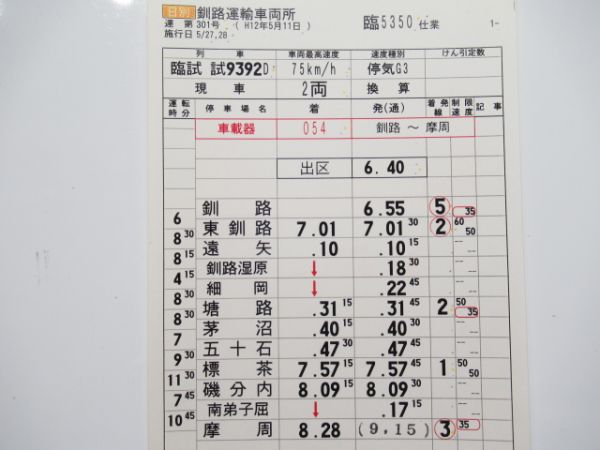 日別 釧路運輸車両所
運 第301号 (H12年5月11日) 臨5350 仕業
施行日 5/27,28 1-
列 車 車両最高速度 速度種別 けん引定数
臨試 試9392D 75km/h 停気G3
現 車 2両 換 算
運転時分 停 車 場 名 着 発(通) 着発線 制限速度 記 事
車載器 054 釧路 ～ 摩周
出区 6.40
釧 路 6.55 5 35
6
東 釧 路 7.01 7.01 30 2 60 50
8 30
遠 矢 .10 .10 15
8 15
釧路湿原 ↓ .18 30
4 15
細 岡 ↓ .22 45
8 30
塘 路 .31 15 .31 45 2 50 35
8 30
茅 沼 .40 15 .40 30
7
五 十 石 .47 30 .47 45
9 30
標 茶 7.57 15 7.57 45 1 50 50
11 30
磯 分 内 8.09 15 8.09 30
7 45
南弟子屈 ↓ .17 15
10 45
摩 周 8.28 (9.15) 3 35